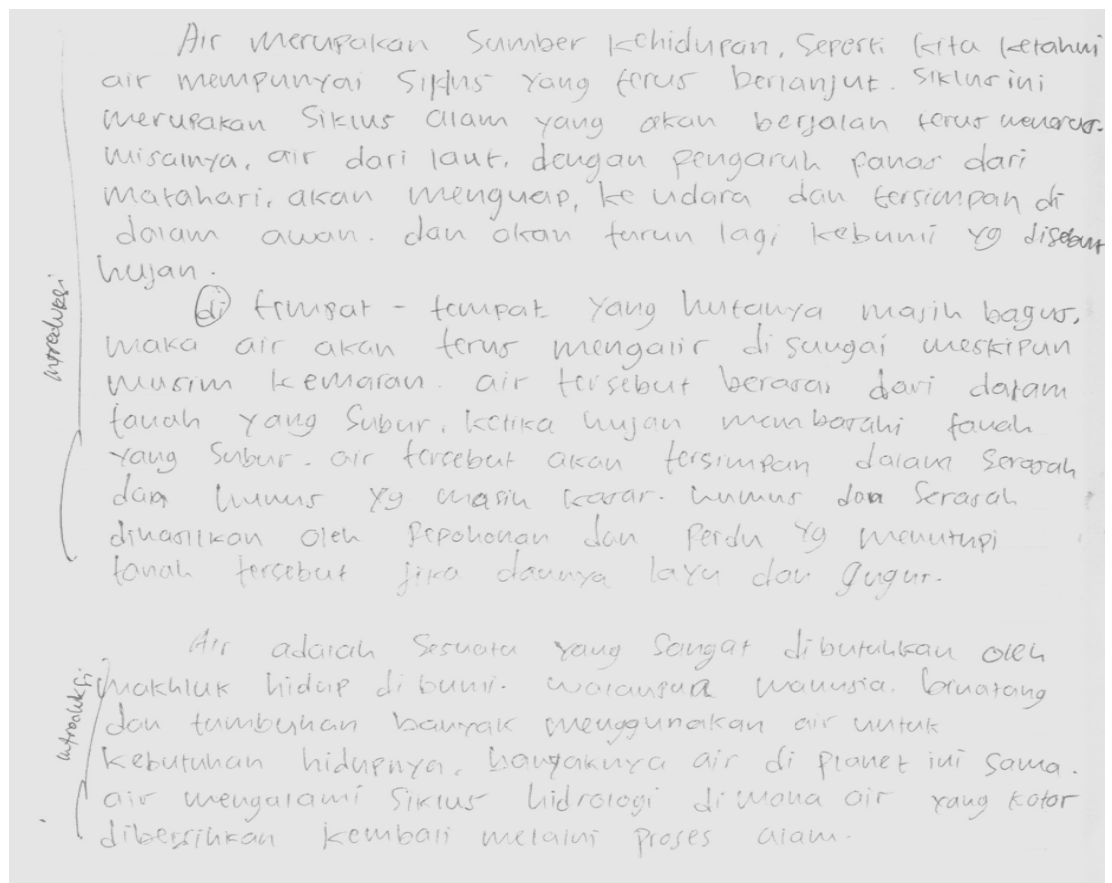 Air merupakan sumber kehidupan, seperti kita ketahui
air mempunyai siklus yang terus berlanjut. siklus ini
merupakan siklus alam yang akan berjalan terus menerus.
misalnya, air dari laut, dengan pengaruh panas dari
matahari, akan menguap, ke udara dan tersimpan di
dalam awan. dan akan turun lagi kebumi yg disebut
hujan.
introduksi
di tempat - tempat yang hutanya masih bagus,
maka air akan terus mengalir di sungai meskipun
musim kemaran. air tersebut berasal dari dalam
tanah yang subur. ketika hujan membasahi tanah
yang subur. air tersebut akan tersimpan dalam serasah
dan humus yg masih kasar. humus dan serasah
dihasilkan oleh pepohonan dan perdu yg menutupi
tanah tersebut jika daunya layu dan gugur.
Air adalah sesuatu yang sangat dibutuhkan oleh
introduksi
makhluk hidup di bumi. walaupun manusia. binatang
dan tumbuhan banyak menggunakan air untuk
kebutuhan hidupnya, banyaknya air di planet ini sama.
air mengalami siklus hidrologi dimana air yang kotor
dibersihkan kembali melalui proses alam.